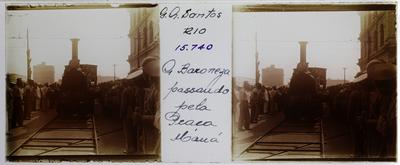 G. G. Santos
210
15.740
A Baroneza
passando
pela
Praca
Mauá